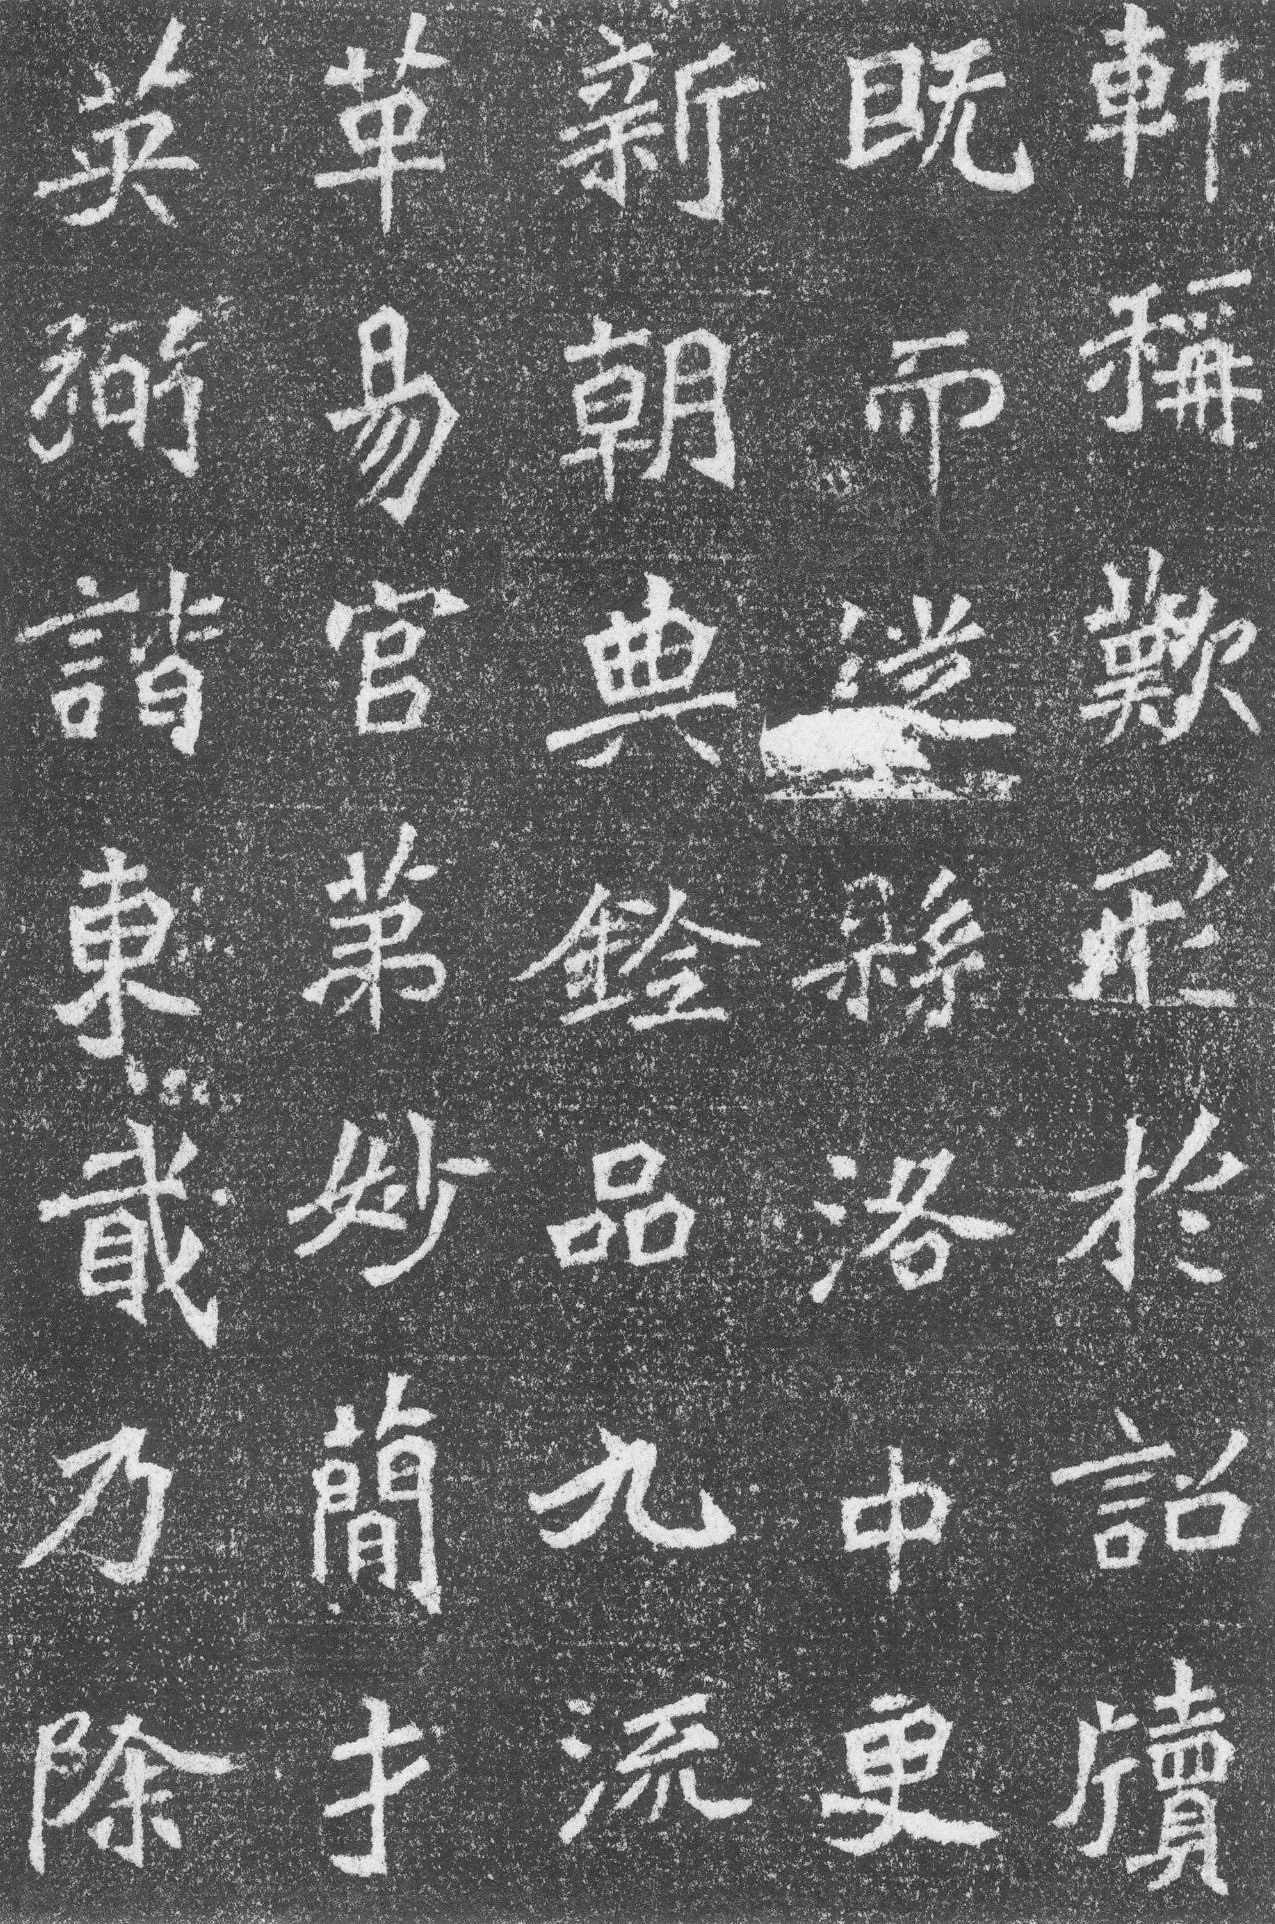 軒稱歎形於詔牘
既而遷縣洛中更
新朝典銓品九流
革易官第妙簡才
英彌諧東貳乃除